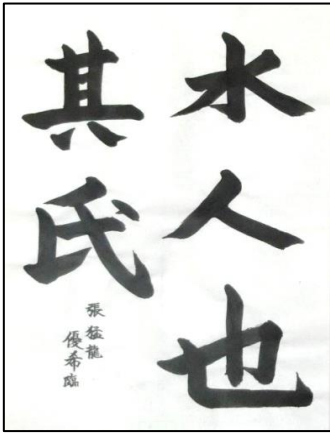 水人也
其氏
張猛龍
優希臨